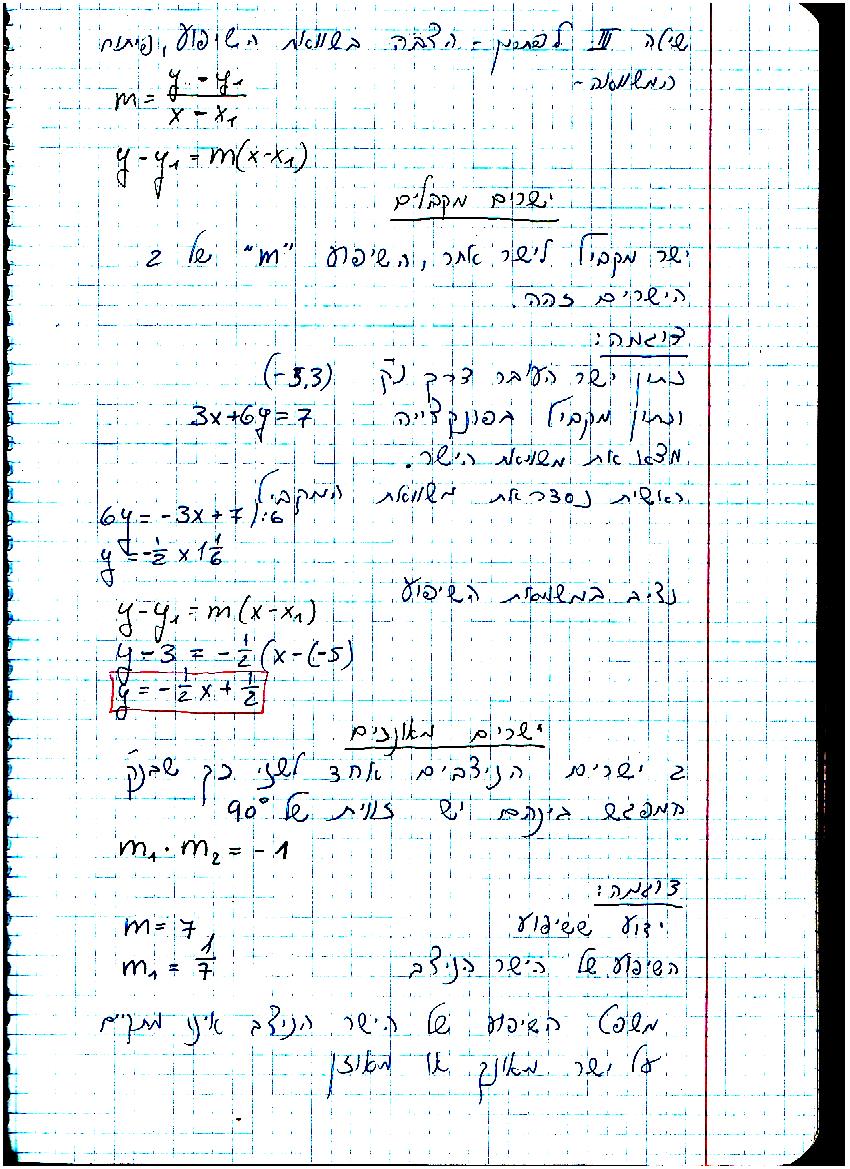 שיטה III לפתרון - הצבה בשוואת השיפוע, פיתוח
המשוואה -
m = (y - y₁)/(x - x₁)
y - y₁ = m(x-x₁)
ישרים מקבלים
ישר מקביל לישר אחר, השיפוע "m" של 2
הישרים זהה.
דוגמה:
נתון ישר העובר דרך נק' (-5,3)
ונתון מקביל בפונקצייה 3x+6y=7
מצאו את משוואת הישר.
ראשית נסדר את משוואת המקביל
6y = -3x + 7 /:6
y = -½ x 1⅙
נציב במשוואת השיפוע
y - y₁ = m(x-x₁)
y - 3 = -½(x-(-5)
y = -½x + ½
ישרים מאונכים
2 ישרים הניצבים אחד לשני כך שבנק'
המפגש בינהם יש זווית של 90°
m₁ · m₂ = -1
דוגמה:
ידוע ששיפוע m = 7
השיפוע של הישר הניצב m₁ = 1/7
משפט השיפוע של הישר הניצב אינו מתקיים
על ישר מאונך או מאוזן